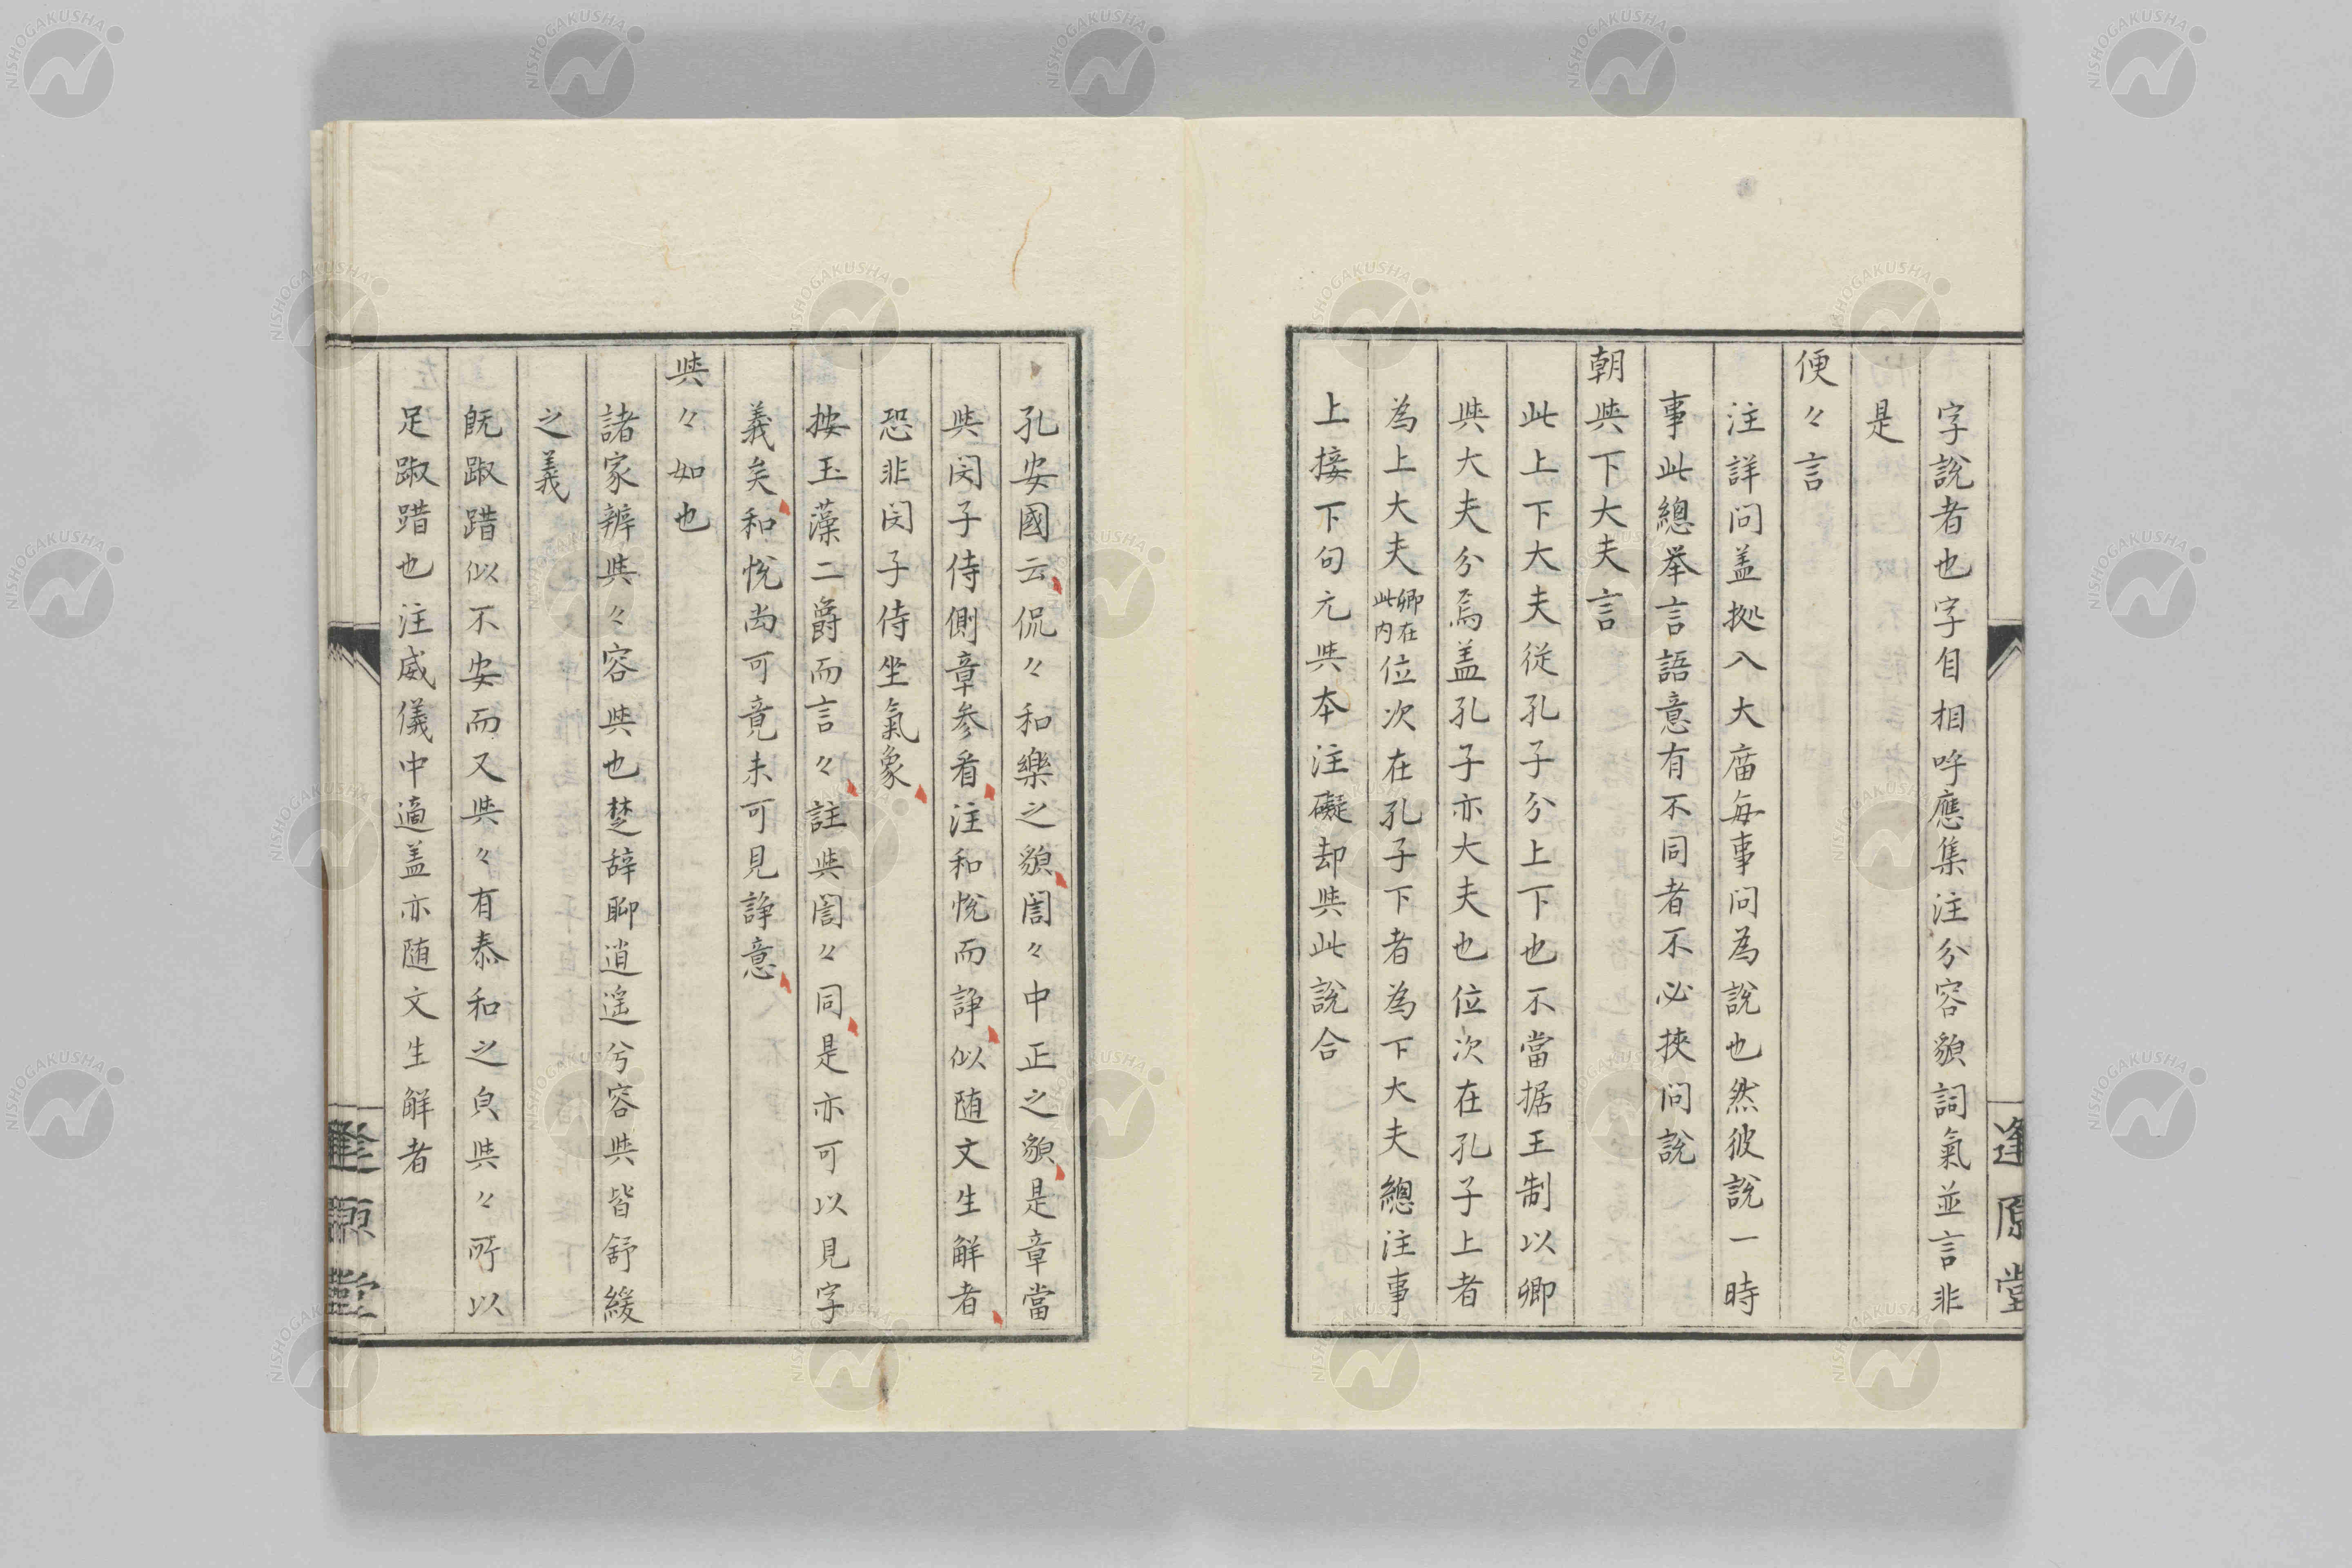 字說者也字自相呼應集注分容貌詞氣並言非
是
便々言
注詳問盖拠入大庙每事問為說也然彼說一時
事此總举言語意有不同者不必挾問說
朝與下大夫言
此上下大夫從孔子分上下也不當据王制以卿
與大夫分焉盖孔子亦大夫也位次在孔子上者
為上大夫卿在此内位次在孔子下者為下大夫總注事
上接下句元與本注礙却與此說合
逢原堂
孔安國云侃々和樂之貌誾々中正之貌是章當
與閔子侍側章参看注和悅而諍似随文生解者
恐非閔子侍坐氣象
按玉藻二爵而言々註與誾々同是亦可以見字
義矣和悅尚可竟未可見諍意
與々如也
諸家辨與々容與也楚辞聊逍遥兮容與皆舒緩
之義
旣踧踖似不安而又與々有泰和之皃與々所以
足踧踖也注威儀中適盖亦随文生解者
逢原堂
NISHOGAKUSHA